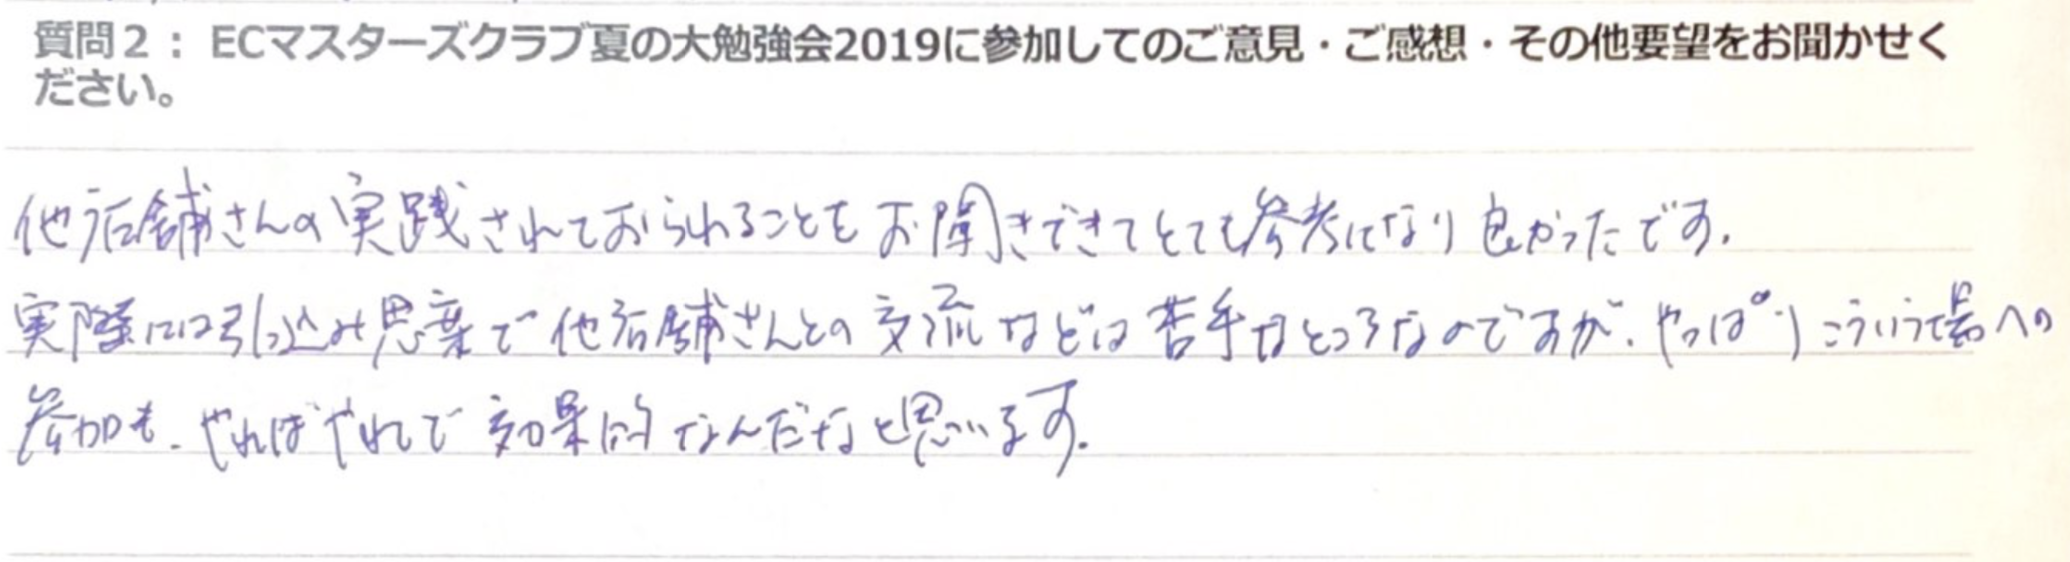 質問２： ECマスターズクラブ夏の大勉強会2019に参加してのご意見・ご感想・その他要望をお聞かせく
ださい。
他店舗さんの実践されておられることをお聞きできてとても参考になり良かったです。
実際には引っ込み思案で他店舗さんとの交流などは苦手なところなのですが、やっぱりこういう場への
参加も、やればやれで効果的なんだなと思います。